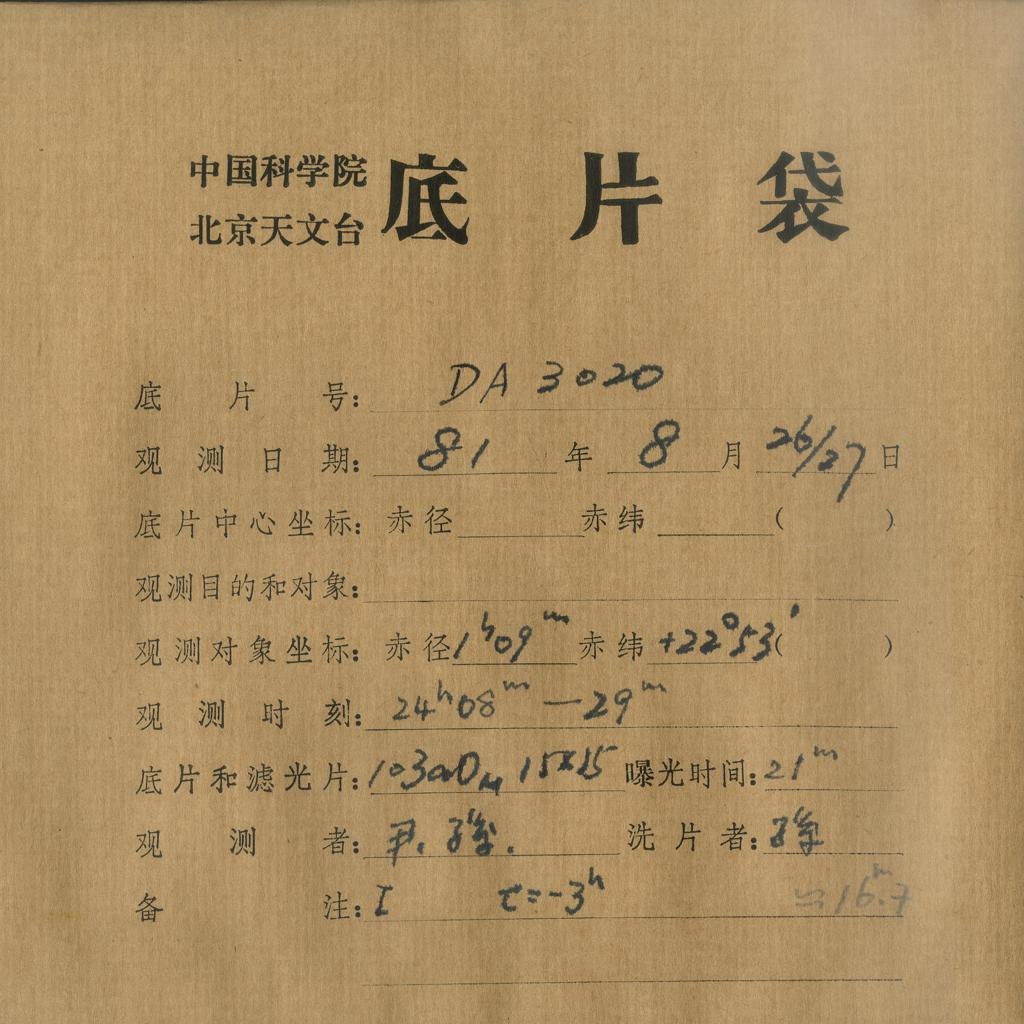 中国科学院
北京天文台
底片袋
底片号: DA 3020
观测日期: 81年 8月 26/27日
底片中心坐标: 赤径 赤纬 ( )
观测目的和对象:
观测对象坐标: 赤径 1h09m 赤纬 +22°53' ( )
观测时刻: 24h08m—29m
底片和滤光片: 103aD 15x15 曝光时间: 21m
观测者: 尹. 孙. 洗片者: 孙
备注: I τ=-3h ≈16.7m